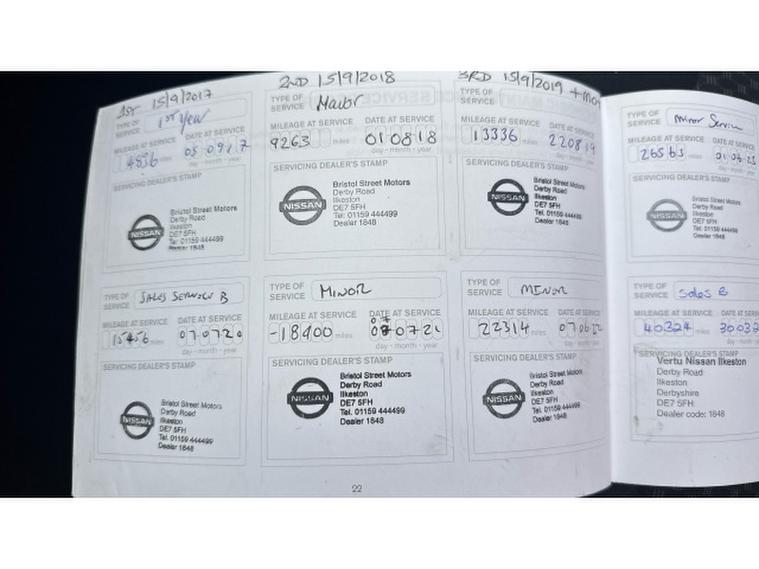 1ST 15/9/2017
TYPE OF SERVICE 1st Year
MILEAGE AT SERVICE DATE AT SERVICE
4856 miles 05 09 17
day - month - year
SERVICING DEALER'S STAMP
NISSAN
Bristol Street Motors
Derby Road
Ilkeston
DE7 5FH
Tel: 01159 444499
Dealer 1848
2ND 15/9/2018
TYPE OF SERVICE Major
MILEAGE AT SERVICE DATE AT SERVICE
9263 miles 01 08 18
day - month - year
SERVICING DEALER'S STAMP
NISSAN
Bristol Street Motors
Derby Road
Ilkeston
DE7 5FH
Tel: 01159 444499
Dealer 1848
3RD 15/9/2019 + MOT
TYPE OF SERVICE
MILEAGE AT SERVICE DATE AT SERVICE
13336 miles 22 08 19
day - month - year
SERVICING DEALER'S STAMP
NISSAN
Bristol Street Motors
Derby Road
Ilkeston
DE7 5FH
Tel. 01159 444499
Dealer 1848
TYPE OF SERVICE SALES SERVICE B
MILEAGE AT SERVICE DATE AT SERVICE
15456 miles 07 07 20
day - month - year
SERVICING DEALER'S STAMP
NISSAN
Bristol Street Motors
Derby Road
Ilkeston
DE7 5FH
Tel. 01159 444499
Dealer 1848
TYPE OF SERVICE MINOR
MILEAGE AT SERVICE DATE AT SERVICE
-18900 miles 07 21
day - month - year
SERVICING DEALER'S STAMP
NISSAN
Bristol Street Motors
Derby Road
Ilkeston
DE7 5FH
Tel. 01159 444499
Dealer 1848
TYPE OF SERVICE MINOR
MILEAGE AT SERVICE DATE AT SERVICE
22314 miles 07 06 22
day - month - year
SERVICING DEALER'S STAMP
NISSAN
Bristol Street Motors
Derby Road
Ilkeston
DE7 5FH
Tel. 01159 444499
Dealer 1848
22
TYPE OF SERVICE Minor Service
MILEAGE AT SERVICE DATE AT SERVICE
26565 miles
day - month
SERVICING DEALER'S STAMP
NISSAN
Bristol Street Motors
Derby Road
Ilkeston
DE7 5FH
Tel: 01159 444499
Dealer 1848
TYPE OF SERVICE Sales B
MILEAGE AT SERVICE DATE AT SERVICE
40324 miles 30 03 2
day - month
SERVICING DEALER'S STAMP
Vertu Nissan Ilkeston
Derby Road
Ilkeston
Derbyshire
DE7 5FH
Dealer code: 1848